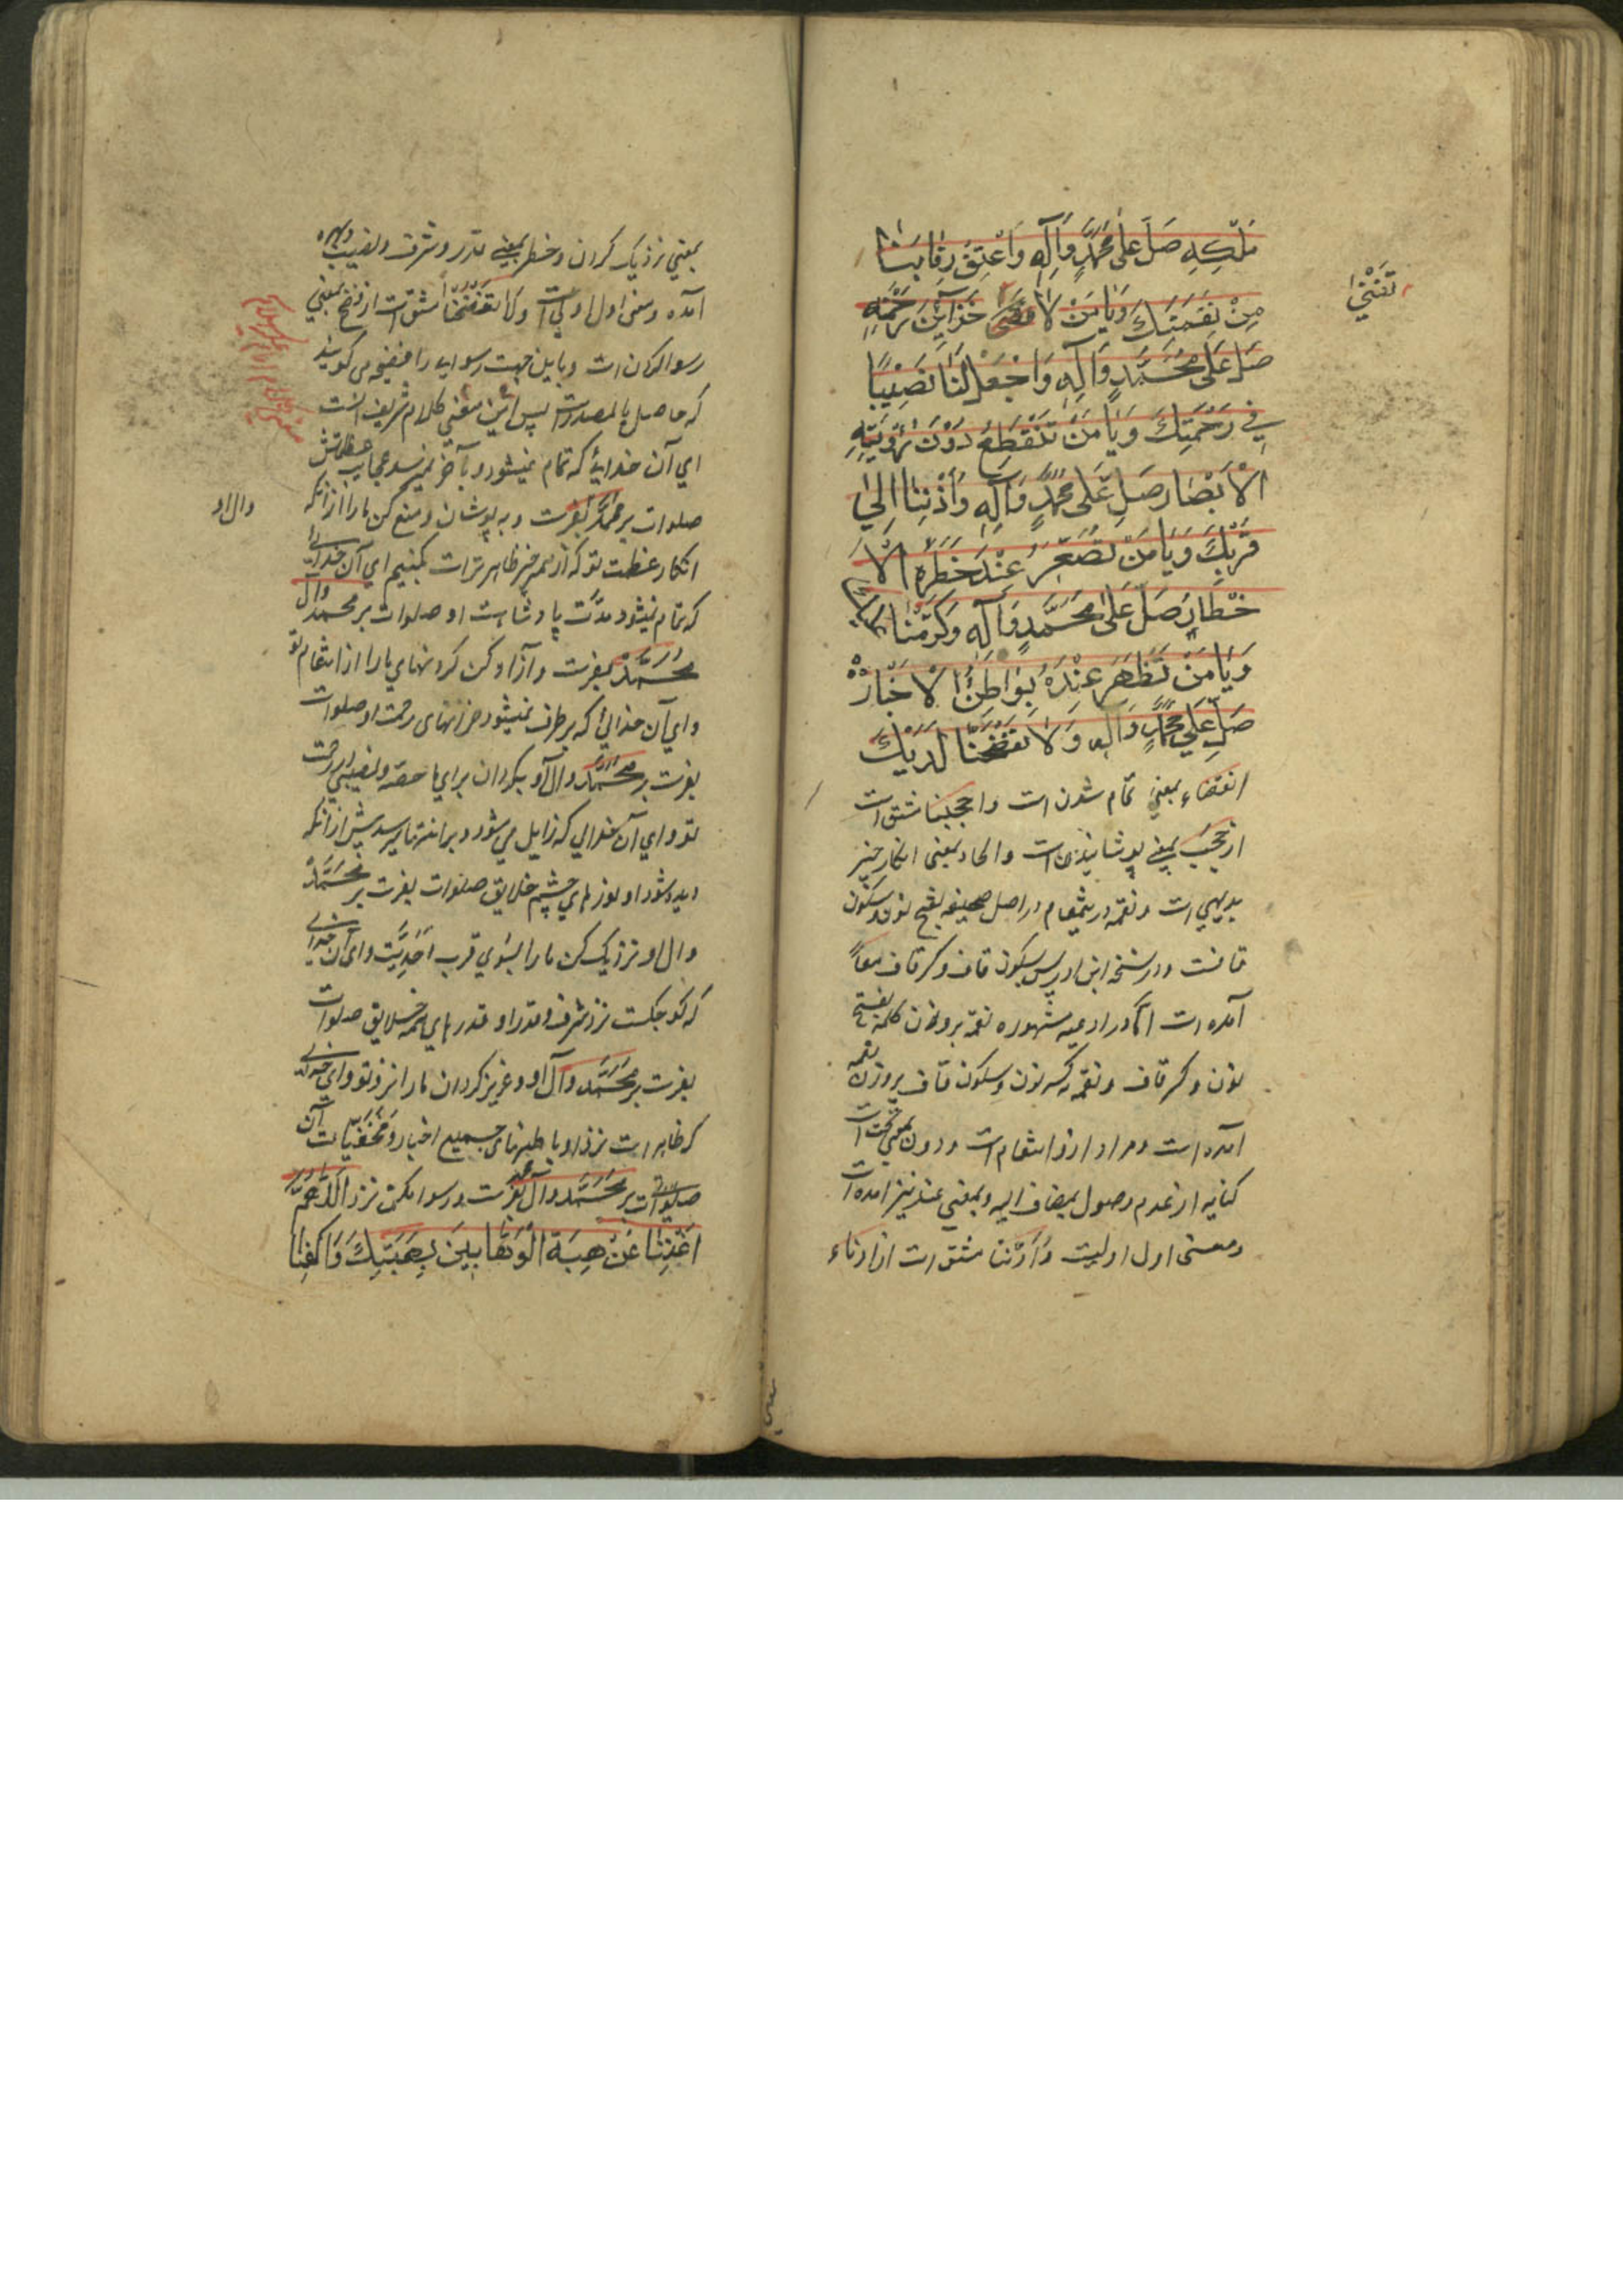 مُلْكِهِ صَلِّ عَلَى مُحَمَّدٍ وَآلِهِ وَأَعْتِقْ رِقَابَنَا
مِنْ نِقْمَتِكَ وَيَا مَنْ لَا خَزَائِنُ رَحْمَتِهِ
تَفْنَى
صَلِّ عَلَى مُحَمَّدٍ وَآلِهِ وَاجْعَلْ لَنَا نَصِيبًا
فِي رَحْمَتِكَ وَيَا مَنْ تَنْقَطِعُ دُونَ رُؤْيَتِهِ
الْأَبْصَارُ صَلِّ عَلَى مُحَمَّدٍ وَآلِهِ وَأَدْنِنَا إِلَى
قُرْبِكَ وَيَا مَنْ تَصْغُرُ عِنْدَ خَطَرِهِ الْأَ
خْطَارُ صَلِّ عَلَى مُحَمَّدٍ وَآلِهِ وَكَرِّمْنَا عَلَيْكَ
وَيَا مَنْ تَظْهَرُ عِنْدَهُ بَوَاطِنُ الْأَخْبَارِ
صَلِّ عَلَى مُحَمَّدٍ وَآلِهِ وَلَا تَفْضَحْنَا لَدَيْكَ
انقضاء بمعنی تمام شدن است واحجبنا مشتق است
از حجب بمعنی پوشانیدن است والحاد بمعنی انکار چیز
بدیهی است ونقمه در اینمقام در اصل صحیفه بفتح نون وسکون
قافست ودر نسخه ابن ادریس بسکون قاف وکسر قاف معاً
آمده است اما در ادعیه مشهوره نقمه بروزن کلمه بفتح
نون وکسر قاف ونقمه بکسر نون وسکون قاف بروزن نعمه
آمده است ومراد ازو انتقام است ودون بمعنی تحت است
کنایه از عدم وصول بمضاف الیه وبمعنی عند نیز آمده است
ومعنی اول اولیست وَأَدْنِنَا مشتق است از ادناء
بمعنی نزدیک کردن وخطر بمعنی قدر وشرف ونصیب وبهره
آمده ومعنی اول اولی است ولا تَفْضَحْنَا مشتق است از فضح بمعنی
رسوا کردن است وباین جهت رسوایی را فضیحه می گویند
که حاصل بالمصدر است پس این معنی کلام شریف انست
ای آن خدایی که تمام نمیشود وبآخر نمیرسد عجایب عظمتش
صلوات بر محمد بفرست وبپوشان ومنع کن ما را از آنکه
وال او
انکار عظمت تو که از همه چیز ظاهرتر است بکنیم ای آن خدایی
که تمام نمیشود مدّت پادشاهت او صلوات بر محمد وآل
مُحَمَّد بفرست وآزاد کن گردنهای ما را از انتقام تو
وای آن خدایی که برطرف نمیشود خزانهای رحمت او صلوات
بفرست بر مُحَمَّد وآل او وبگردان برای ما حصّه ونصیبی از رحمت
تو وای آن خدایی که زایل می شود پیش از آنکه
دیده شود او نورهای چشم خلایق صلوات بفرست بر مُحَمَّد
وال او ونزدیک کن ما را بسوی قرب أحدیّت وای آن خدایی
که کوچکست نزد شرف وقدر او قدرهای همه خلایق صلوات
بفرست بر مُحَمَّد وآل او وعزیز گردان ما را نزد تو وای خدایی
که ظاهر است نزد او باطنهای جمیع اخبار ومخفیّات آن
صلوات بر مُحَمَّد وال محمد بفرست ورسوا مکن نزد اللَّهُمَّ
أَغْنِنَا عَنْ هِبَةِ الْوَهَّابِينَ بِهِبَتِكَ وَاكْفِنَا